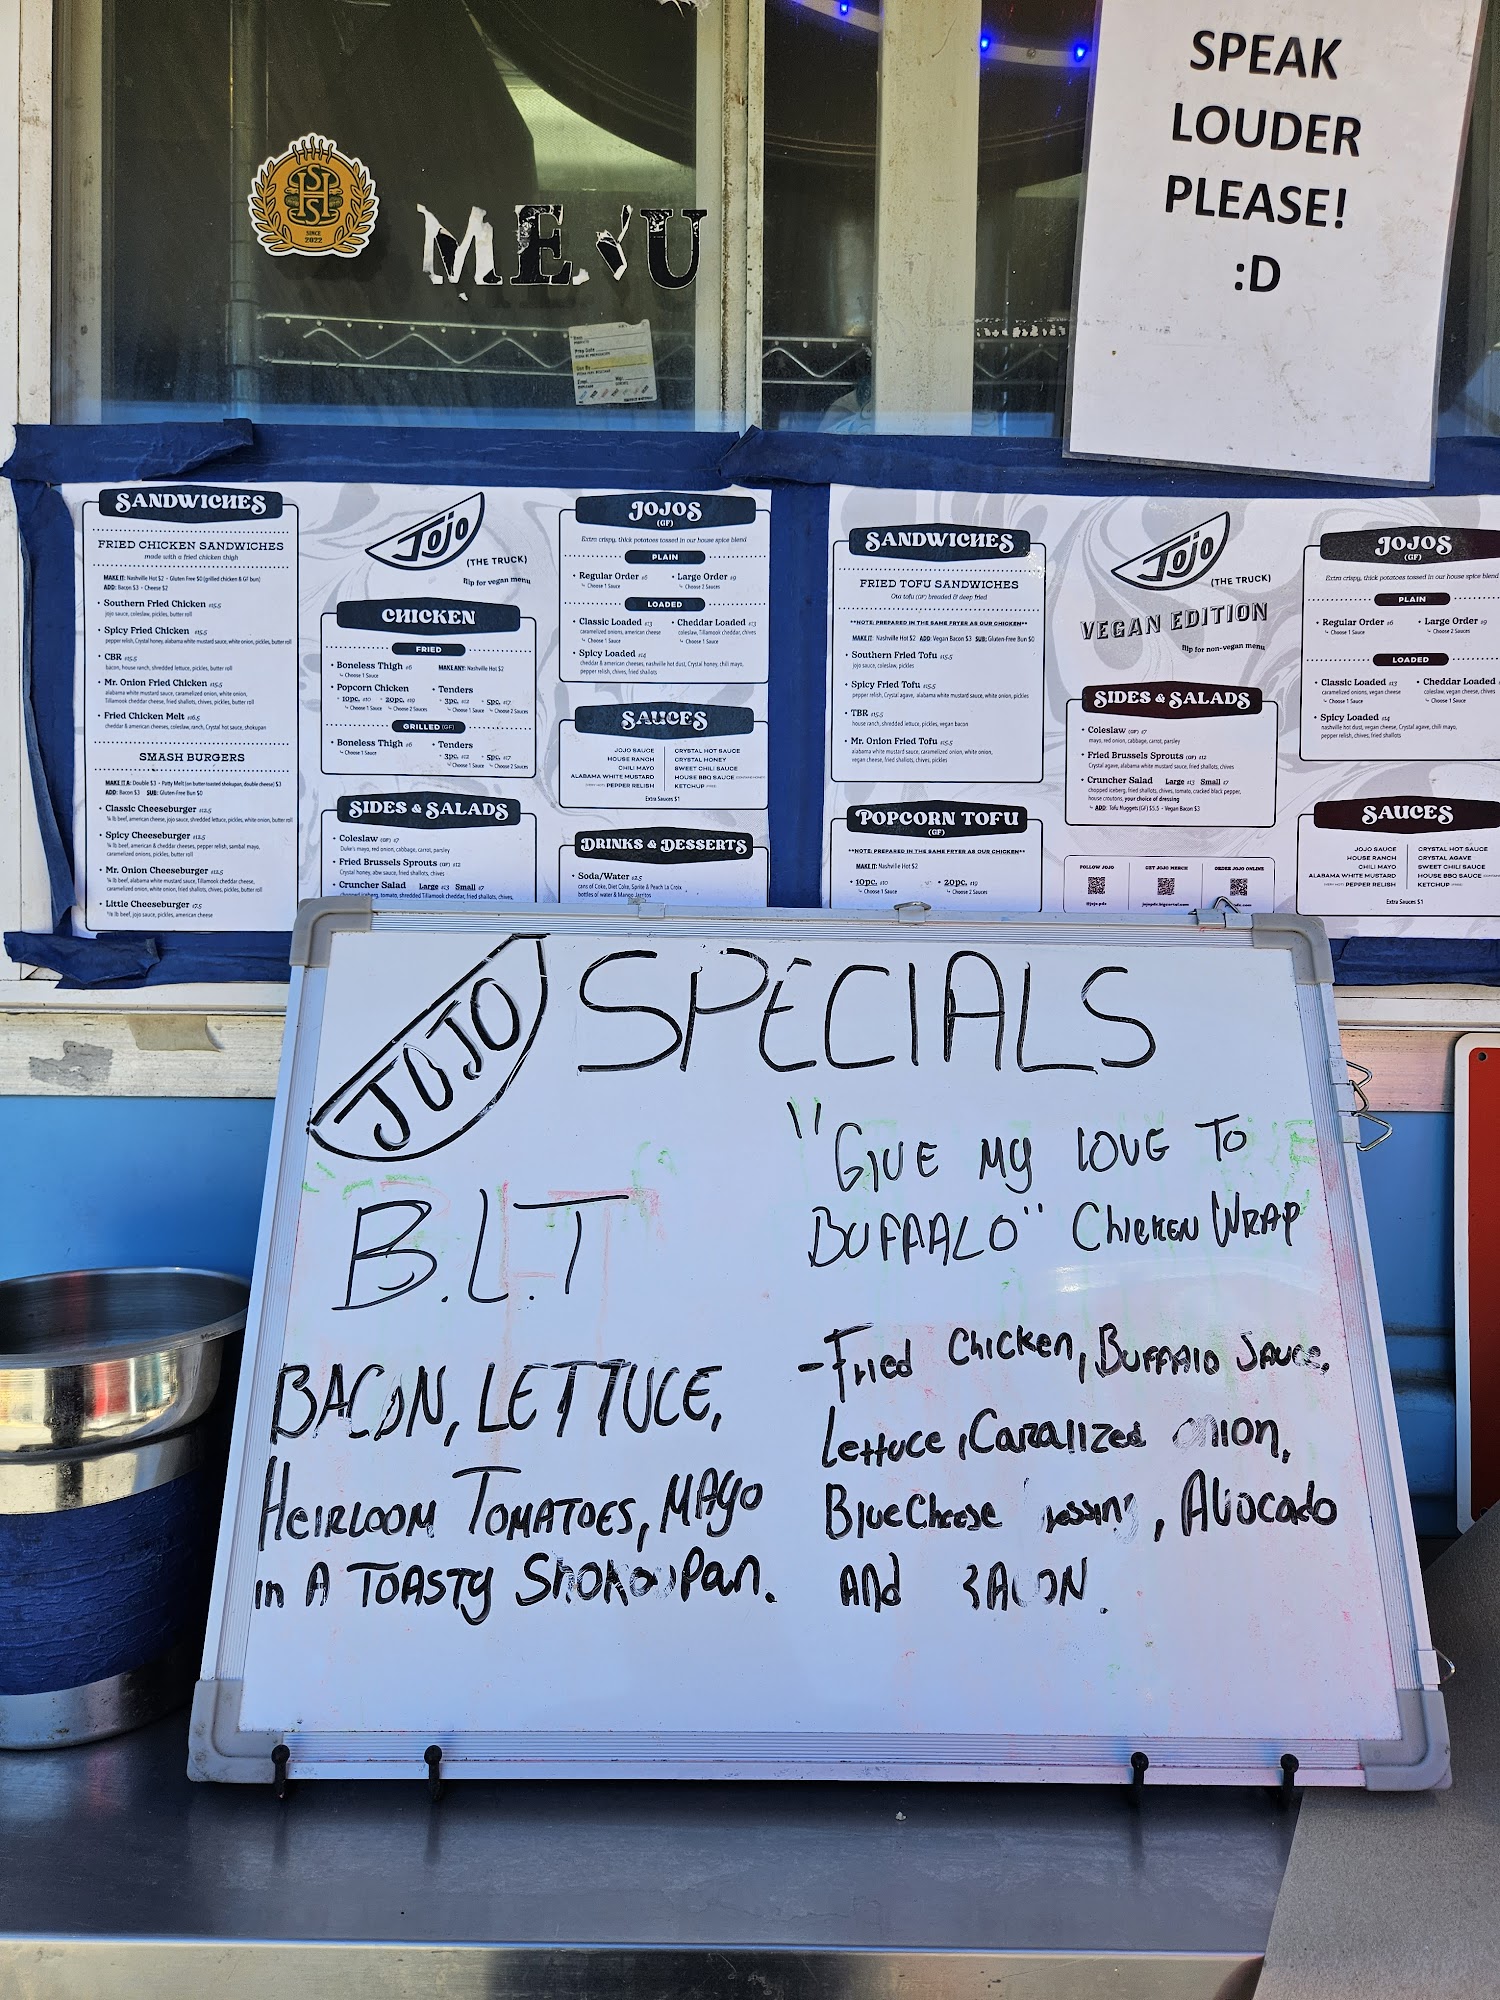 SPEAK
LOUDER
PLEASE!
:D
HSS
SINCE
2022
MENU
Prep Date
Use By
SANDWICHES
FRIED CHICKEN SANDWICHES
made with a fried chicken thigh
MAKE IT: Nashville Hot $2 - Gluten Free $0 (grilled chicken & GF bun)
ADD: Bacon $3 - Cheese $2
• Southern Fried Chicken 15.5
jojo sauce, coleslaw, pickles, butter roll
• Spicy Fried Chicken 15.5
pepper relish, Crystal honey, alabama white mustard sauce, white onion, pickles, butter roll
• CBR 15.5
bacon, house ranch, shredded lettuce, pickles, butter roll
• Mr. Onion Fried Chicken 15.5
alabama white mustard sauce, caramelized onion, white onion,
Tillamook cheddar cheese, fried shallots, chives, pickles, butter roll
• Fried Chicken Melt 16.5
cheddar & american cheeses, coleslaw, ranch, Crystal hot sauce, shokupan
SMASH BURGERS
MAKE IT A: Double $3 - Patty Melt (on butter toasted shokupan, double cheese) $3
ADD: Bacon $3 SUB: Gluten-Free Bun $0
• Classic Cheeseburger 12.5
¼ lb beef, american cheese, jojo sauce, shredded lettuce, pickles, white onion, butter roll
• Spicy Cheeseburger 12.5
¼ lb beef, american & cheddar cheeses, pepper relish, sambal mayo,
caramelized onions, pickles, butter roll
• Mr. Onion Cheeseburger 12.5
¼ lb beef, alabama white mustard sauce, Tillamook cheddar cheese,
caramelized onion, white onion, fried shallots, chives, pickles, butter roll
• Little Cheeseburger 7.5
⅛ lb beef, jojo sauce, pickles, american cheese
Jojo
(THE TRUCK)
flip for vegan menu
CHICKEN
FRIED
• Boneless Thigh 6
Choose 1 Sauce
MAKE ANY: Nashville Hot $2
• Popcorn Chicken
• 10pc. 10 • 20pc. 19
Choose 1 Sauce Choose 2 Sauces
• Tenders
• 3pc. 12 • 5pc. 17
Choose 1 Sauce Choose 2 Sauces
GRILLED (GF)
• Boneless Thigh 6
Choose 1 Sauce
• Tenders
• 3pc. 12 • 5pc. 17
Choose 1 Sauce Choose 2 Sauces
SIDES & SALADS
• Coleslaw (GF) 7
Duke's mayo, red onion, cabbage, carrot, parsley
• Fried Brussels Sprouts (GF) 12
Crystal honey, abw sauce, fried shallots, chives
• Cruncher Salad Large 13 Small 7
chopped iceberg, tomato, shredded Tillamook cheddar, fried shallots, chives,
JOJOS
(GF)
Extra crispy, thick potatoes tossed in our house spice blend
PLAIN
• Regular Order 6 • Large Order 9
Choose 1 Sauce Choose 2 Sauces
LOADED
• Classic Loaded 13
caramelized onions, american cheese
Choose 1 Sauce
• Cheddar Loaded 13
coleslaw, Tillamook cheddar, chives
Choose 1 Sauce
• Spicy Loaded 14
cheddar & american cheeses, nashville hot dust, Crystal honey, chili mayo,
pepper relish, chives, fried shallots
SAUCES
JOJO SAUCE
HOUSE RANCH
CHILI MAYO
ALABAMA WHITE MUSTARD
PEPPER RELISH
CRYSTAL HOT SAUCE
CRYSTAL HONEY
SWEET CHILI SAUCE
HOUSE BBQ SAUCE
KETCHUP
Extra Sauces $1
DRINKS & DESSERTS
• Soda/Water 2.5
cans of Coke, Diet Coke, Sprite & Peach La Croix
bottles of water & Mango Jarritos
SANDWICHES
FRIED TOFU SANDWICHES
Ota tofu (GF) breaded & deep fried
**NOTE: PREPARED IN THE SAME FRYER AS OUR CHICKEN**
MAKE IT: Nashville Hot $2 ADD: Vegan Bacon $3 SUB: Gluten-Free Bun $0
• Southern Fried Tofu 15.5
jojo sauce, coleslaw, pickles
• Spicy Fried Tofu 15.5
pepper relish, Crystal agave, alabama white mustard sauce, white onion, pickles
• TBR 15.5
house ranch, shredded lettuce, pickles, vegan bacon
• Mr. Onion Fried Tofu 15.5
alabama white mustard sauce, caramelized onion, white onion,
vegan cheese, fried shallots, chives, pickles
POPCORN TOFU
(GF)
**NOTE: PREPARED IN THE SAME FRYER AS OUR CHICKEN**
MAKE IT: Nashville Hot $2
• 10pc. 10 • 20pc. 19
Choose 1 Sauce Choose 2 Sauces
Jojo
(THE TRUCK)
VEGAN EDITION
flip for non-vegan menu
SIDES & SALADS
• Coleslaw (GF) 7
mayo, red onion, cabbage, carrot, parsley
• Fried Brussels Sprouts (GF) 12
Crystal agave, alabama white mustard sauce, fried shallots, chives
• Cruncher Salad Large 13 Small 7
chopped iceberg, fried shallots, chives, tomato, cracked black pepper,
house croutons, your choice of dressing
ADD: Tofu Nuggets (GF) $5.5 - Vegan Bacon $3
FOLLOW JOJO
@jojo.pdx
GET JOJO MERCH
jojopdx.bigcartel.com
ORDER JOJO ONLINE
JOJOS
(GF)
Extra crispy, thick potatoes tossed in our house spice blend
PLAIN
• Regular Order 6 • Large Order 9
Choose 1 Sauce Choose 2 Sauces
LOADED
• Classic Loaded 13
caramelized onions, vegan cheese
Choose 1 Sauce
• Cheddar Loaded
coleslaw, vegan cheese, chives
Choose 1 Sauce
• Spicy Loaded 14
nashville hot dust, vegan cheese, Crystal agave, chili mayo,
pepper relish, chives, fried shallots
SAUCES
JOJO SAUCE
HOUSE RANCH
CHILI MAYO
ALABAMA WHITE MUSTARD
PEPPER RELISH
CRYSTAL HOT SAUCE
CRYSTAL AGAVE
SWEET CHILI SAUCE
HOUSE BBQ SAUCE
KETCHUP
Extra Sauces $1
JOJO SPECIALS
B.L.T
BACON, LETTUCE,
HEIRLOOM TOMATOES, MAYO
in A TOASTY SHOKUPAN.
"GIVE MY LOVE TO
BUFAALO" CHICKEN WRAP
-FRIED CHICKEN, BUFFALO SAUCE,
LETTUCE, CARALIZED ONION,
BLUE CHEESE DRESSING, AVOCADO
AND BACON.